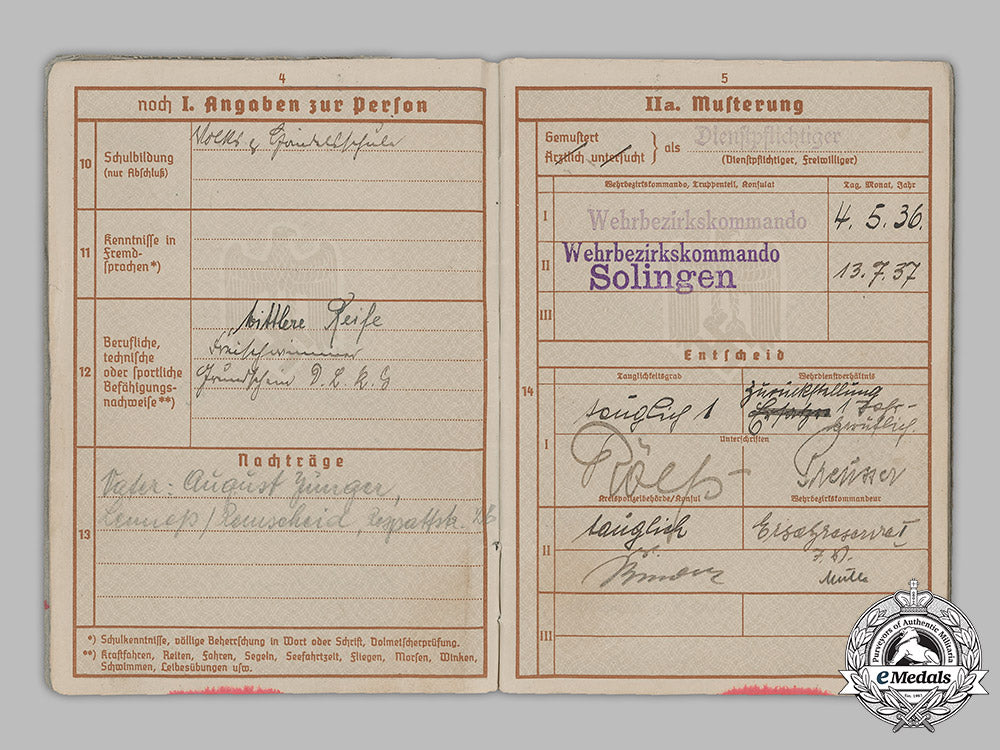 4
noch I. Angaben zur Person
10
Schulbildung
(nur Abschluß)
Volks
11
Kenntnisse in
Fremd-
sprachen*)
12
Berufliche,
technische
oder sportliche
Befähigungs-
nachweise**)
Mittlere Reife
Freischwimmer
Grundschein D.L.R.G
Nachträge
13
Vater: August Junger,
Lennep/Remscheid,
*) Schulkenntnisse, völlige Beherrschung in Wort oder Schrift, Dolmetscherprüfung.
**) Kraftfahren, Reiten, Fahren, Segeln, Seefahrtzeit, Fliegen, Morsen, Winken,
Schwimmen, Leibesübungen usw.
5
IIa. Musterung
Gemustert
Ärztlich untersucht
} als
Dienstpflichtiger
(Dienstpflichtiger, Freiwilliger)
Wehrbezirkskommando, Truppenteil, Konsulat
Tag, Monat, Jahr
I
Wehrbezirkskommando
4.5.36.
II
Wehrbezirkskommando
Solingen
13.7.37
III
Entscheid
14
Tauglichkeitsgrad
Wehrdienstverhältnis
I
tauglich 1
Zurückstellung
1 Jahr
Unterschriften
Kreispolizeibehörde/Konsul
Wehrbezirkskommandeur
II
tauglich
Ersatzreserve I
III
Purveyors of Authentic Militaria
eMedals